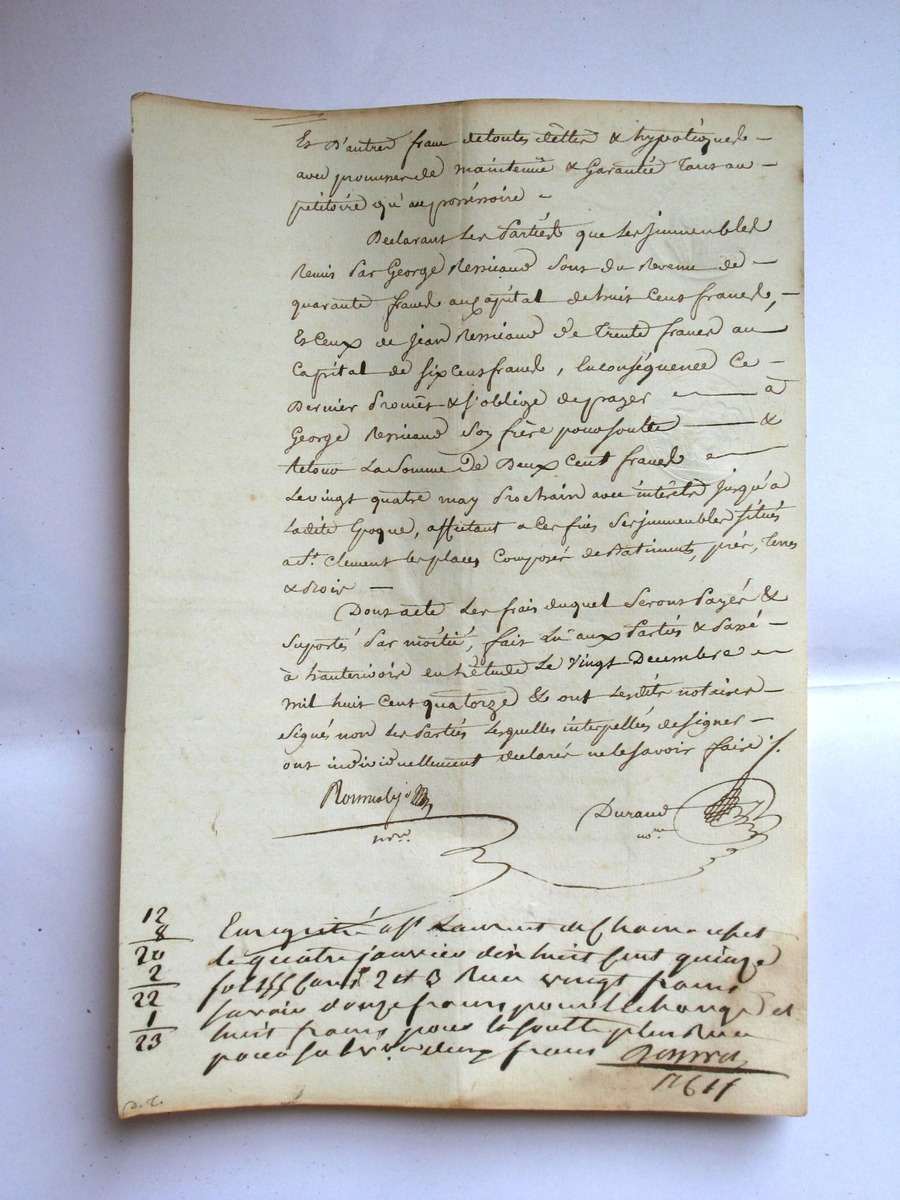 Et d'autres franc de toutes dettes & hypotèques —
avec promesses de maintenüe & Garantie tant au —
pétitoire qu'au possessoire —
Déclarant les Parties que les jmmeubles
Remis Par George Ressicaud sont du Revenu de —
quarante francs au Capital de huit Cens francs, —
Et Ceux de jean Ressicaud de trente francs au
Capital de six cens francs, En conséquence Ce —
Dernier Promet & s'oblige de payer — à
George Ressicaud son frère pour soulte — &
Retour La Somme de Deux Cent francs —
Le vingt quatre may Prochain avec intérêts jusqu'à
Ladite Epoque, affectant a Ces fins Ses jmmeubles situés
a St. Clement les places Composés de Batiments, prés, terres
& Bois —
Dont acte Les frais duquel Seront Payés &
suportés Par moitié, fait Lu aux Parties & Passé —
à hauterivoire en L'étude Le Vingt Decembre —
mil huit Cent quatorze & ont Lesdits notaires —
signés non Les Parties Lesquelles interpellées de signer —
ont individuellement déclarées ne le savoir faire ./.
Durand
nore.
not.re
12
8
20
2
22
1
23
Enregistré a St Laurent de Chamousset
le quatre janvier dix huit cent quinze
fol 155 Cases 2 et 3 Reçu vingt francs
savoir douze francs pour l'échange et
huit francs pour la soulte plus Reçu
pour subvon deux francs